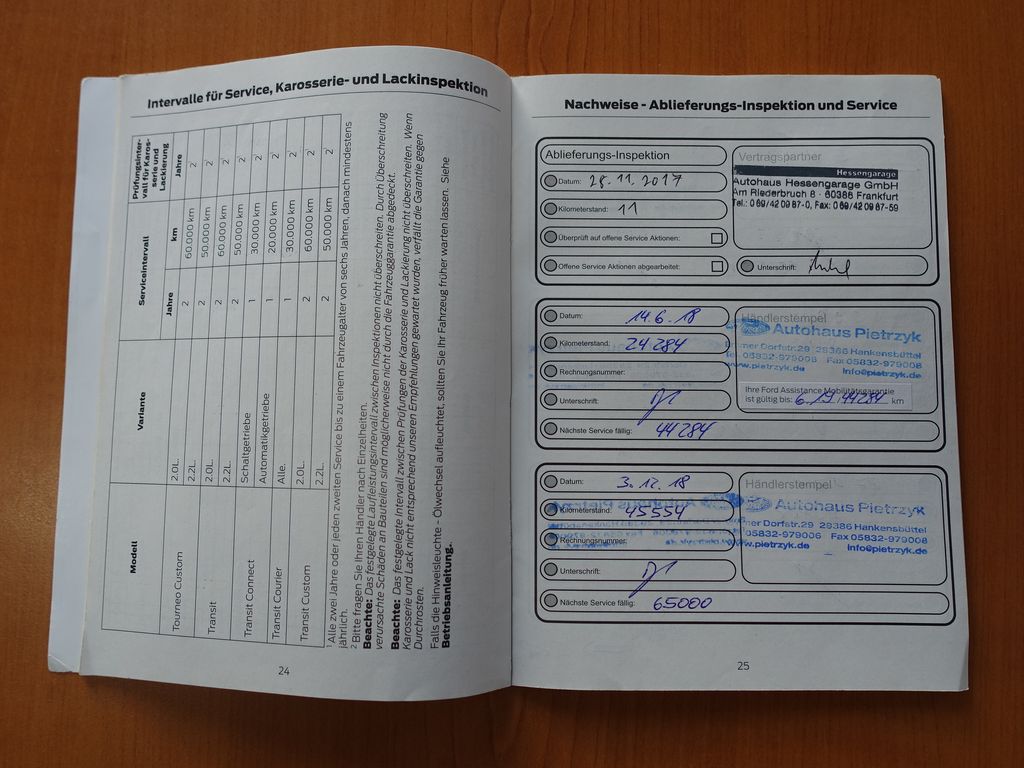 Intervalle für Service, Karosserie- und Lackinspektion
Modell Variante Serviceintervall Prüfungsinter-
vall für Karos-
serie und
Lackierung
Jahre km Jahre
Tourneo Custom 2.0L. 2 60.000 km 2
2.2L. 2 50.000 km 2
Transit 2.0L. 2 60.000 km 2
2.2L. 2 50.000 km 2
Transit Connect Schaltgetriebe 1 30.000 km 2
Automatikgetriebe 1 20.000 km 2
Transit Courier Alle. 1 30.000 km 2
Transit Custom 2.0L 2 60.000 km 2
2.2L 2 50.000 km 2
1 Alle zwei Jahre oder jeden zweiten Service bis zu einem Fahrzeugalter von sechs Jahren, danach mindestens
jährlich.
2 Bitte fragen Sie Ihren Händler nach Einzelheiten.
Beachte: Das festgelegte Laufleistungsintervall zwischen Inspektionen nicht überschreiten. Durch Überschreitung
verursachte Schäden an Bauteilen sind möglicherweise nicht durch die Fahrzeuggarantie abgedeckt.
Beachte: Das festgelegte Intervall zwischen Prüfungen der Karosserie und Lackierung nicht überschreiten. Wenn
Karosserie und Lack nicht entsprechend unseren Empfehlungen gewartet wurden, verfällt die Garantie gegen
Durchrosten.
Falls die Hinweisleuchte - Ölwechsel aufleuchtet, sollten Sie Ihr Fahrzeug früher warten lassen. Siehe
Betriebsanleitung.
24
Nachweise - Ablieferungs-Inspektion und Service
Ablieferungs-Inspektion
Datum: 28.11.2017
Kilometerstand: 11
Überprüft auf offene Service Aktionen:
Offene Service Aktionen abgearbeitet:
Vertragspartner
Hessengarage
Autohaus Hessengarage GmbH
Am Riederbruch 8 · 60386 Frankfurt
Tel.: 069/42 09 87-0, Fax: 069/42 09 87-59
Unterschrift:
Datum: 14.6.18
Kilometerstand: 24 284
Rechnungsnummer:
Unterschrift:
Nächste Service fällig: 44 284
Händlerstempel
Autohaus Pietrzyk
Dorfstr.29 29386 Hankensbüttel
05832-979006 Fax 05832-979008
www.pietrzyk.de info@pietrzyk.de
Ihre Ford Assistance Mobilitätsgarantie
ist gültig bis: 6.19 44284 km
Datum: 3.12.18
Kilometerstand: 45554
Rechnungsnummer:
Unterschrift:
Nächste Service fällig: 65000
Händlerstempel
Autohaus Pietrzyk
Dorfstr.29 29386 Hankensbüttel
05832-979006 Fax 05832-979008
www.pietrzyk.de info@pietrzyk.de
25